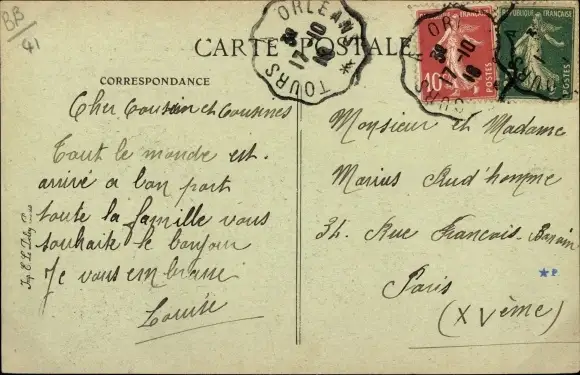 BB
41
CARTE POSTALE
CORRESPONDANCE
Cher Cousin et Cousines
Tout le monde est
arrivé a bon port
toute la famille vous
souhaite le bonjour
Je vous embrasse
Louise
Imp. E. Le Deley, Paris
ORLEANS
17-10
TOURS
ORL
17-10
TOURS
RÉPUBLIQUE FRANÇAISE
10
POSTES
POSTES
Monsieur et Madame
Marius Prud'homme
34. Rue François-Bonvin
Paris
(XVème)
★P